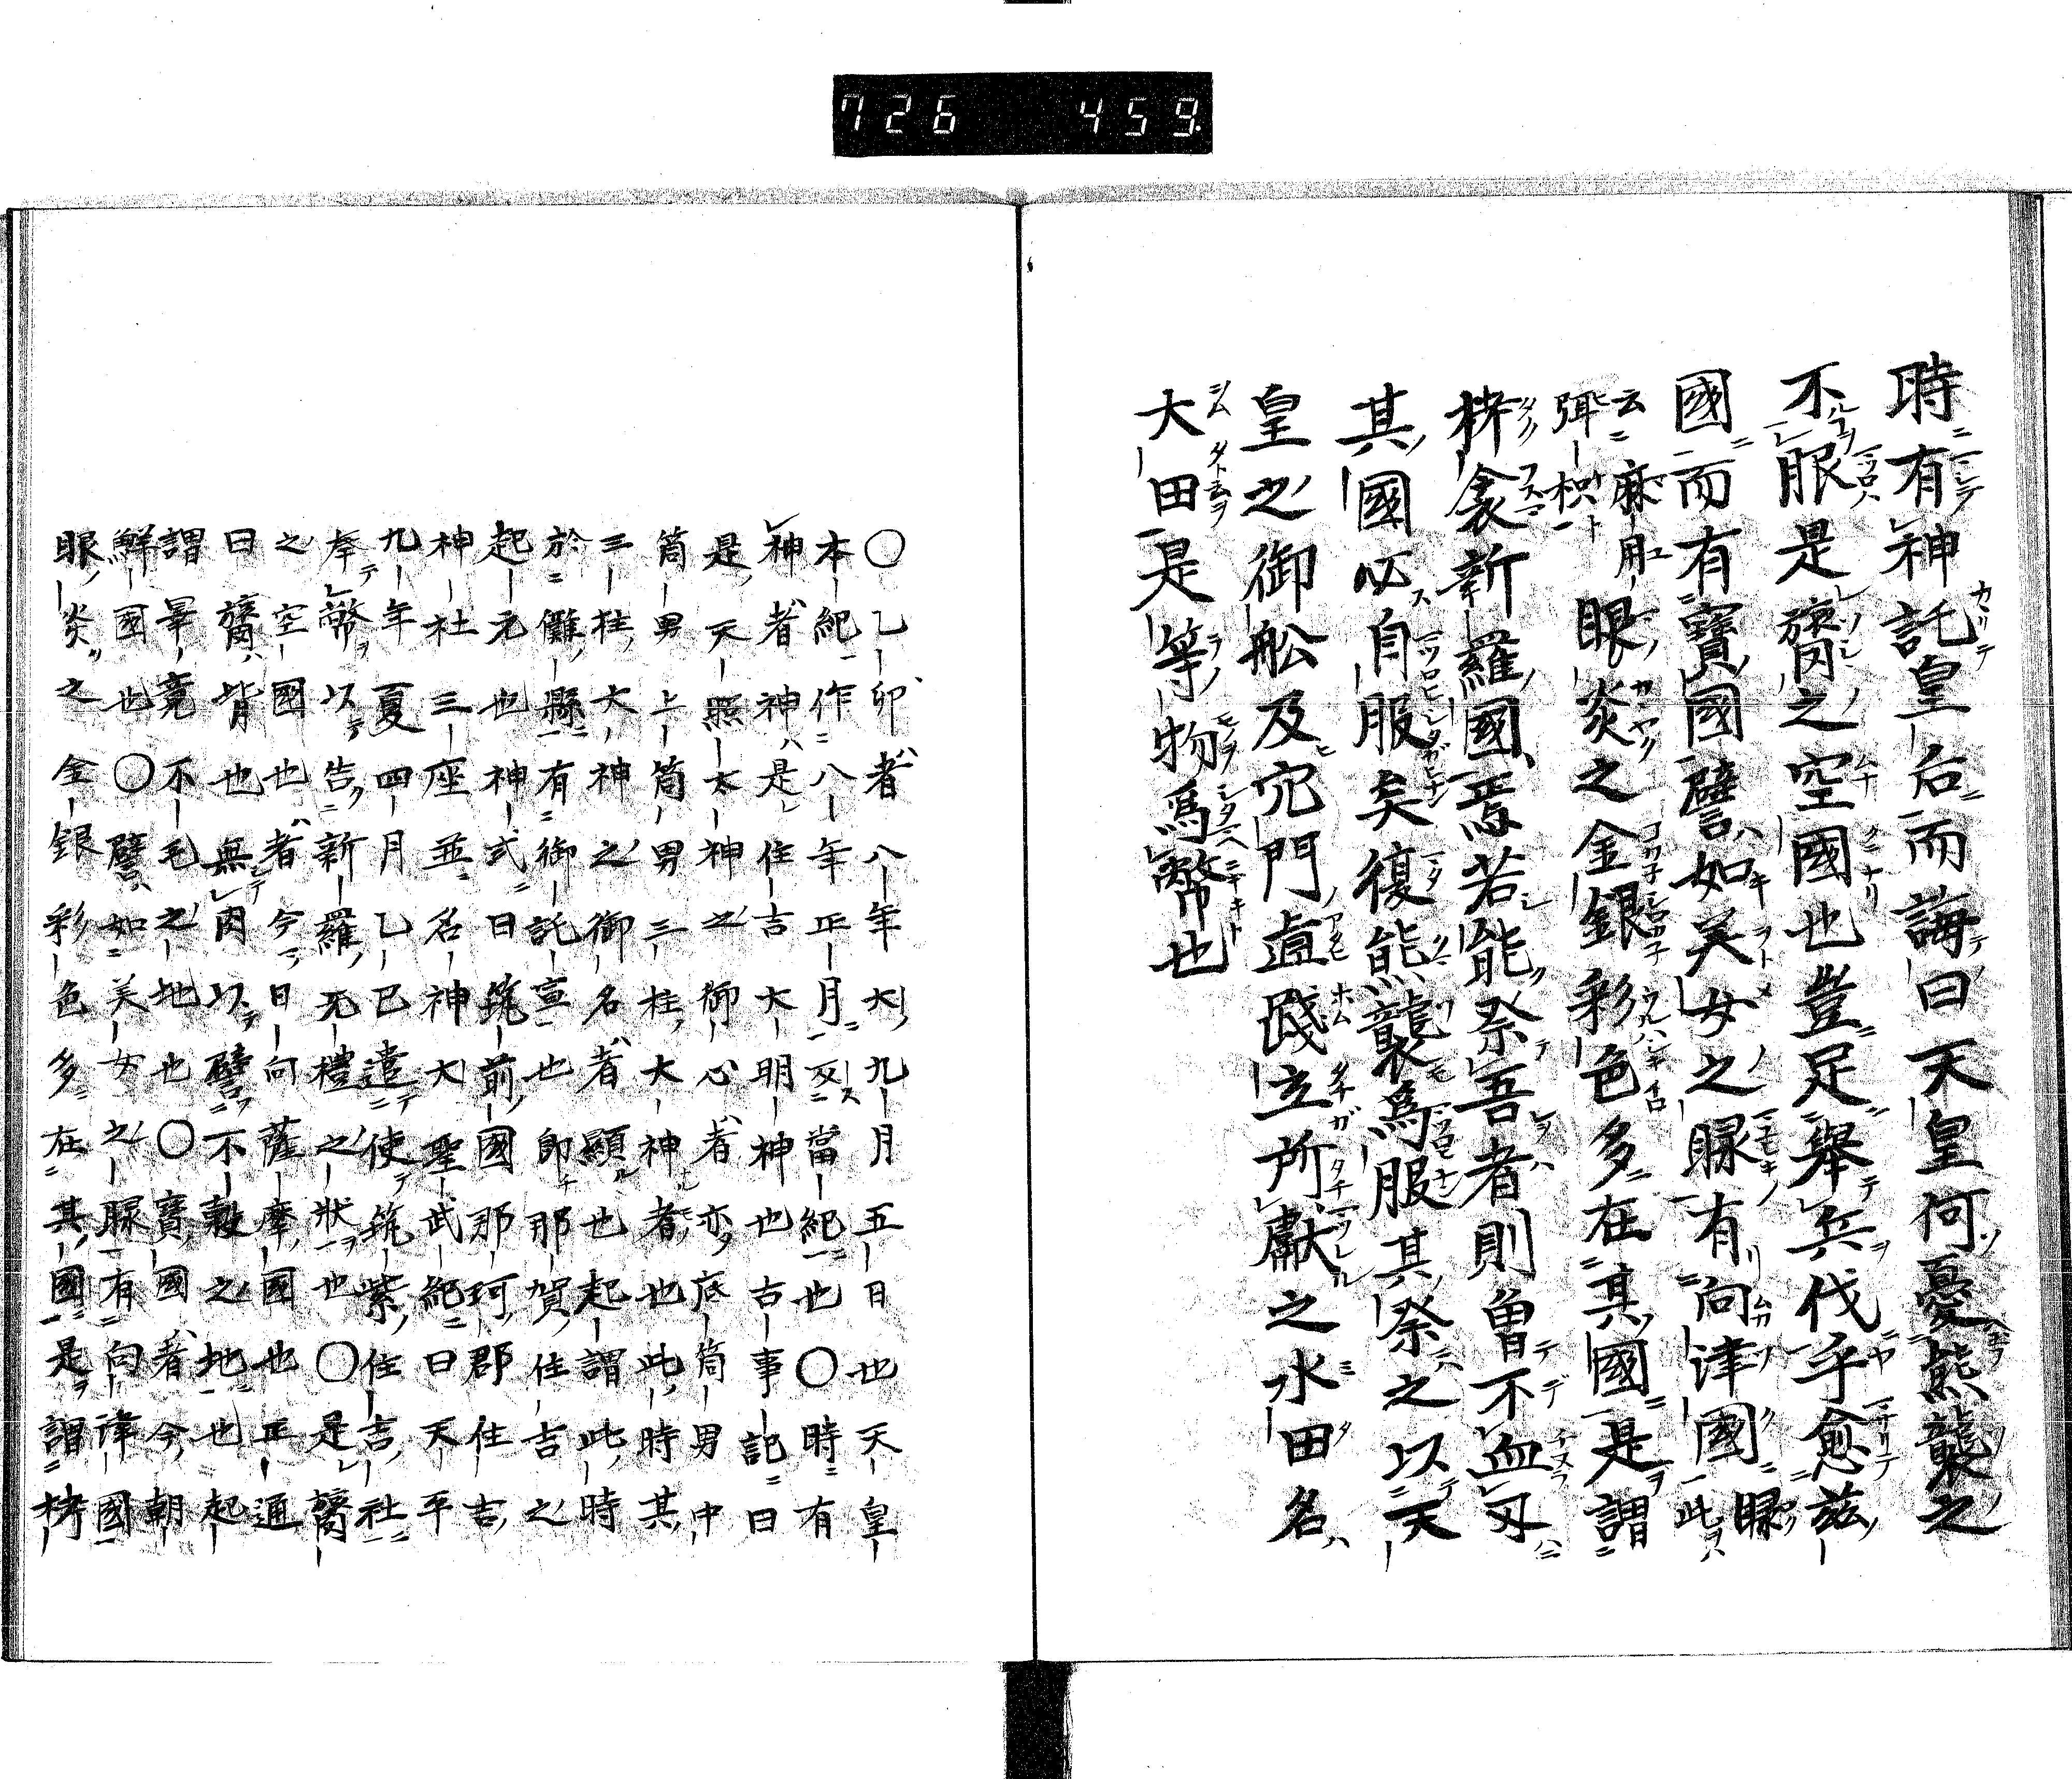 726 459.
時有神託皇后而誨曰天皇何憂熊襲之
不服是膂之空國也豈足舉兵伐乎愈茲
國而有寶國譬如美女之睩有向津國睩此
云麻用弭枳眼炎之金銀彩色多在其國是謂
栲衾新羅國焉若能祭吾者則曽不血刃
其國必自服矣復熊襲爲服其祭之以天
皇之御舩及穴門直踐立所獻之水田名
大田是等物爲幣也
〇乙卯者八年大九月五日也天皇
本紀作八年正月又當紀也〇時有
神者神是住吉大明神也古事記曰
是天照太神之御心者亦底筒男中
筒男上筒男三柱大神者也此時其
三柱大神之御名者顯也起謂此時
於儺縣有御託宣也卽那賀住吉之
起元也神式曰筑前國那珂郡住吉
神社三座並名神大聖武紀曰天平
九年夏四月乙巳遣使筑紫住吉社
奉幣以告新羅无禮之狀也〇是膂
之空國也者今日向薩摩國也正通
曰膂背也無肉以譬不穀之地也起
謂畢竟不毛之地也〇寶國者今朝
鮮國也〇譬如美女之睩有向津國
眼炎之金銀彩色多在其國是謂栲